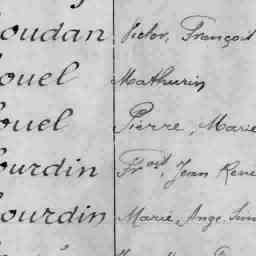 oudan Victor, François
ouel Mathurin
ouel Pierre, Marie
ourdin Fçois, Jean René
ourdin Marie, Ange,